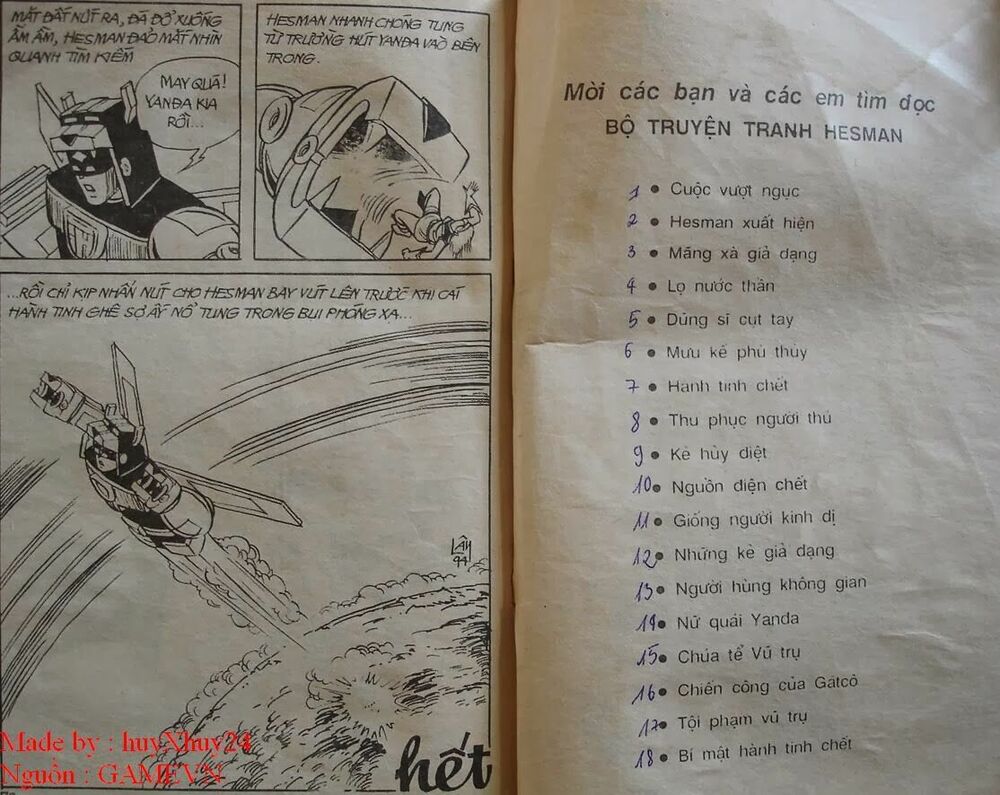 MẶT ĐẤT NỨT RA, ĐÁ ĐỔ XUỐNG
ẦM ẦM, HESMAN ĐẢO MẮT NHÌN
QUANH TÌM KIẾM
MAY QUÁ!
YANDA KIA
RỒI...
HESMAN NHANH CHÓNG TUNG
TỪ TRƯỜNG HÚT YANDA VÀO BÊN
TRONG.
...RỒI CHỈ KỊP NHẤN NÚT CHO HESMAN BAY VÚT LÊN TRƯỚC KHI CÁI
HÀNH TINH GHÊ SỢ ẤY NỔ TUNG TRONG BỤI PHÓNG XẠ...
LÂM
94
hết
Made by : huyXhuy24
Nguồn : GAMEVN
Mời các bạn và các em tìm đọc
BỘ TRUYỆN TRANH HESMAN
1 ● Cuộc vượt ngục
2 ● Hesman xuất hiện
3 ● Mãng xà giả dạng
4 ● Lọ nước thần
5 ● Dũng sĩ cụt tay
6 ● Mưu kế phù thủy
7 ● Hành tinh chết
8 ● Thu phục người thú
9 ● Kẻ hủy diệt
10 ● Nguồn điện chết
11 ● Giống người kinh dị
12 ● Những kẻ giả dạng
13 ● Người hùng không gian
14 ● Nữ quái Yanda
15 ● Chúa tể Vũ trụ
16 ● Chiến công của Gátcô
17 ● Tội phạm vũ trụ
18 ● Bí mật hành tinh chết